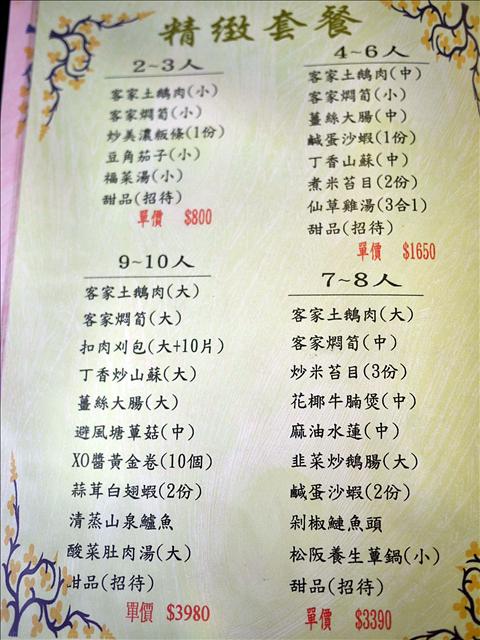 精緻套餐
2~3人
客家土鵝肉(小)
客家燜筍(小)
炒美濃粄條(1份)
豆角茄子(小)
福菜湯(小)
甜品(招待)
單價 $800
4~6人
客家土鵝肉(中)
客家燜筍(小)
薑絲大腸(中)
鹹蛋沙蝦(1份)
丁香山蘇(中)
煮米苔目(2份)
仙草雞湯(3合1)
甜品(招待)
單價 $1650
9~10人
客家土鵝肉(大)
客家燜筍(大)
扣肉刈包(大+10片)
丁香炒山蘇(大)
薑絲大腸(大)
避風塘蕈菇(中)
XO醬黃金卷(10個)
蒜茸白翅蝦(2份)
清蒸山泉鱸魚
酸菜肚肉湯(大)
甜品(招待)
單價 $3980
7~8人
客家土鵝肉(大)
客家燜筍(中)
炒米苔目(3份)
花椰牛腩煲(中)
麻油水蓮(中)
韭菜炒鵝腸(大)
鹹蛋沙蝦(2份)
剁椒鰱魚頭
松阪養生蕈鍋(小)
甜品(招待)
單價 $3390